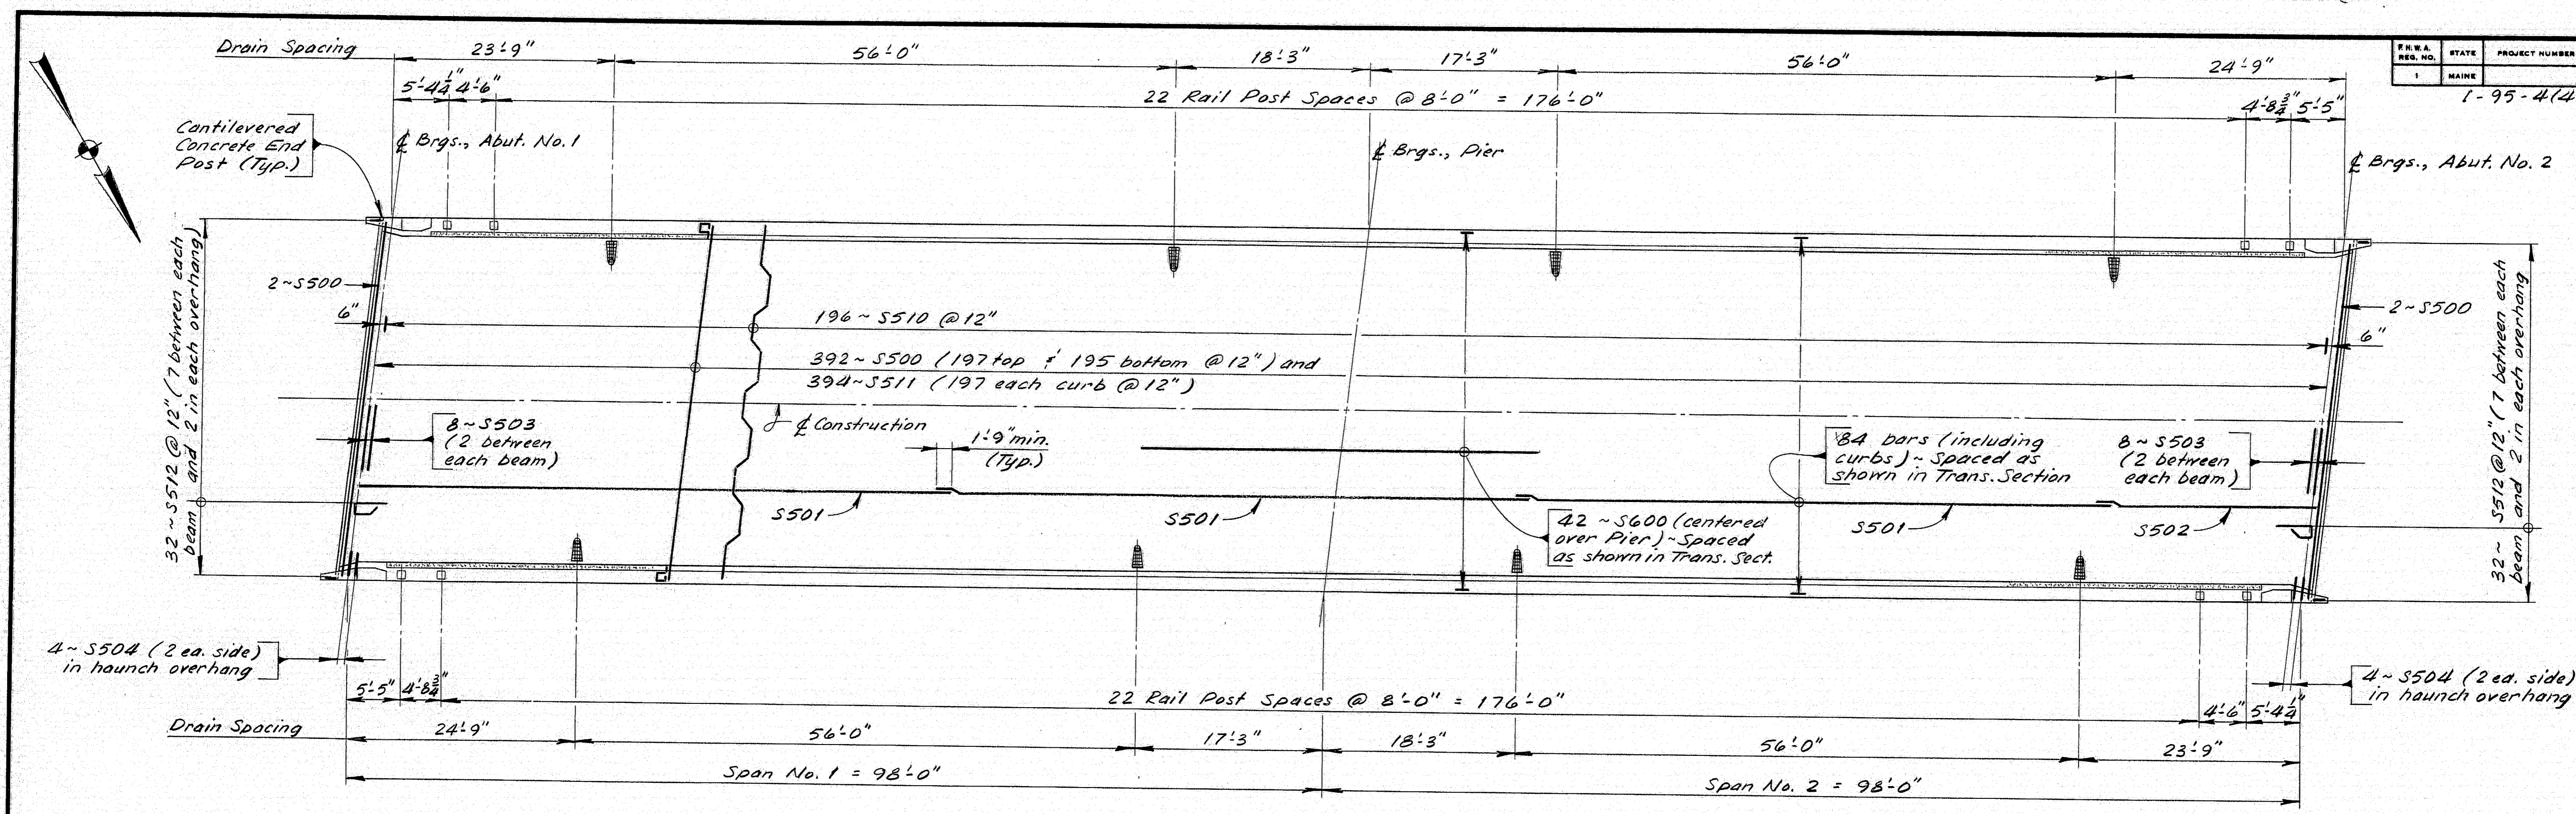 Drain Spacing
23'-9"
56'-0"
18'-3"
17'-3"
56'-0"
24'-9"
F.H.W.A. REG. NO.
STATE
PROJECT NUMBER
1
MAINE
I-95-4(4
5'-4 1/4"
4'-6"
22 Rail Post Spaces @ 8'-0" = 176'-0"
4'-8 3/4"
5'-5"
Cantilevered
Concrete End
Post (Typ.)
℄ Brgs., Abut. No. 1
℄ Brgs., Pier
℄ Brgs., Abut. No. 2
32~S512 @ 12" (7 between each
beam and 2 in each overhang)
2~S500
6"
196~S510 @ 12"
392~S500 (197 top & 195 bottom @ 12") and
394~S511 (197 each curb @ 12")
2~S500
6"
32~S512 @ 12" (7 between each
beam and 2 in each overhang
8~S503
(2 between
each beam)
℄ Construction
1'-9" min.
(Typ.)
84 bars (including
curbs)~Spaced as
shown in Trans. Section
8~S503
(2 between
each beam)
S501
S501
42~S600 (centered
over Pier)~Spaced
as shown in Trans. Sect.
S501
S502
4~S504 (2 ea. side)
in haunch overhang
5'-5"
4'-8 3/4"
22 Rail Post Spaces @ 8'-0" = 176'-0"
4'-6"
5'-4 1/4"
4~S504 (2 ea. side)
in haunch overhang
Drain Spacing
24'-9"
56'-0"
17'-3"
18'-3"
56'-0"
23'-9"
Span No. 1 = 98'-0"
Span No. 2 = 98'-0"